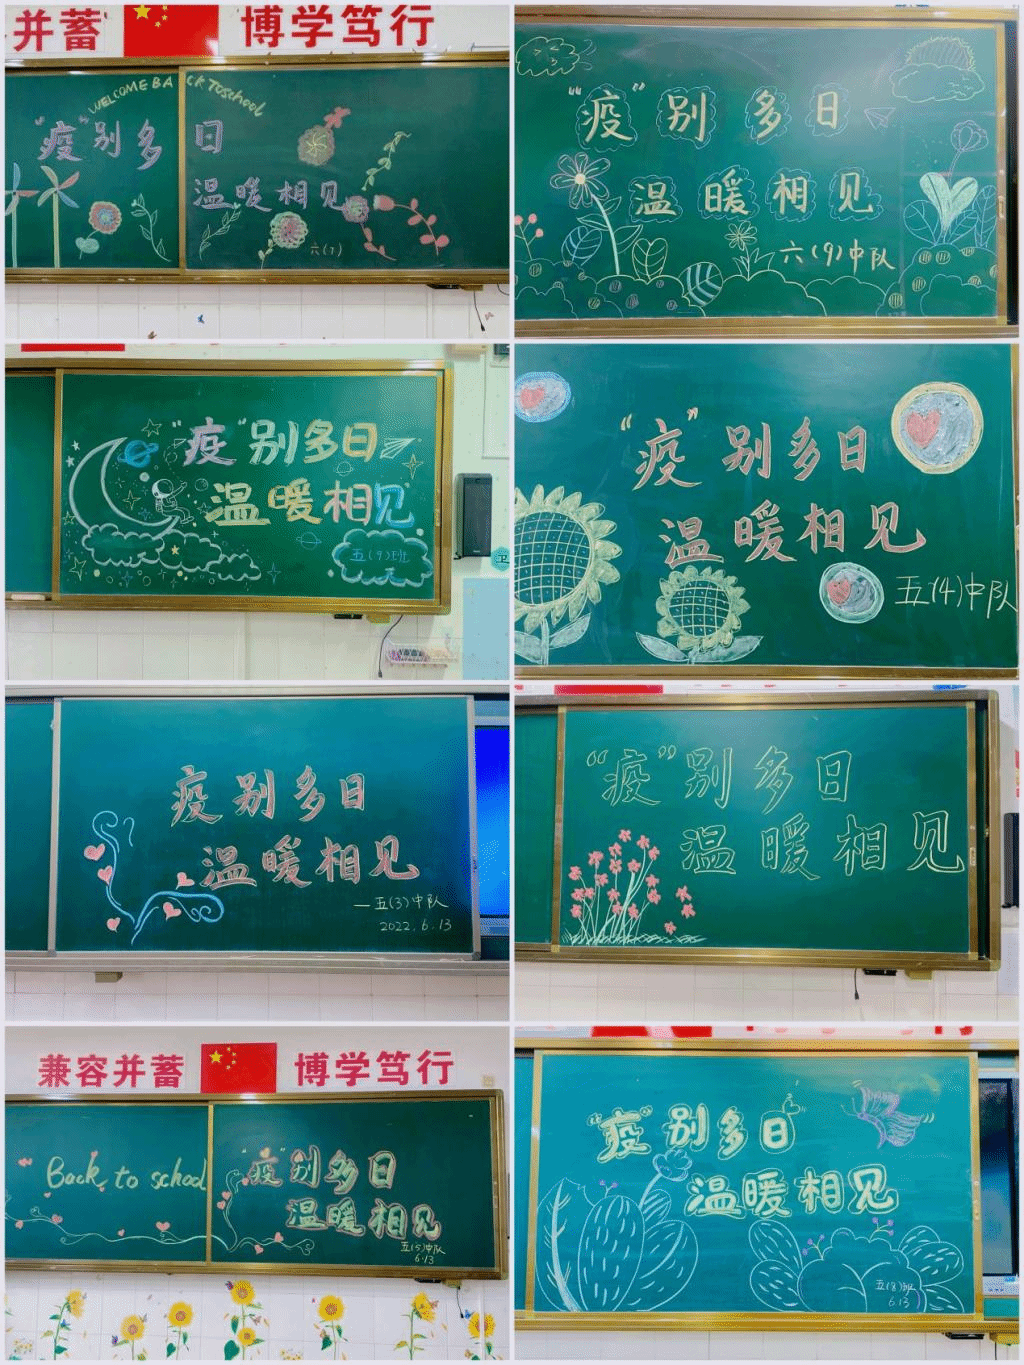 并蓄 博学笃行
WELCOME BACK TO school
“疫”别多日
温暖相见
六(7)
“疫”别多日
温暖相见
六(9)中队
“疫”别多日
温暖相见
五(9)班
卫
“疫”别多日
温暖相见
五(4)中队
疫别多日
温暖相见
—五(3)中队
2022.6.13
“疫”别多日
温暖相见
兼容并蓄 博学笃行
Back to school
“疫”别多日
温暖相见
五(5)中队
6.13
“疫”别多日
温暖相见
五(8)班
6.13